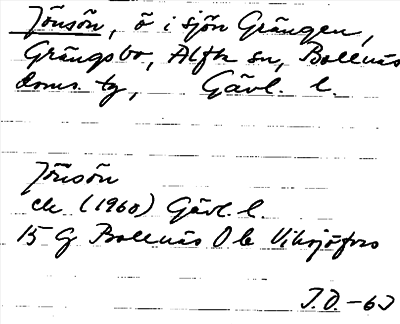 Jönsön, ö i sjön Grängen,
Grängsbo, Alfta sn, Bollnäs
doms. tg, Gävl. l.
Jönsön
ek (1960) Gävl. l.
15 G Bollnäs O b Viksjöfors
J.Ö. -63